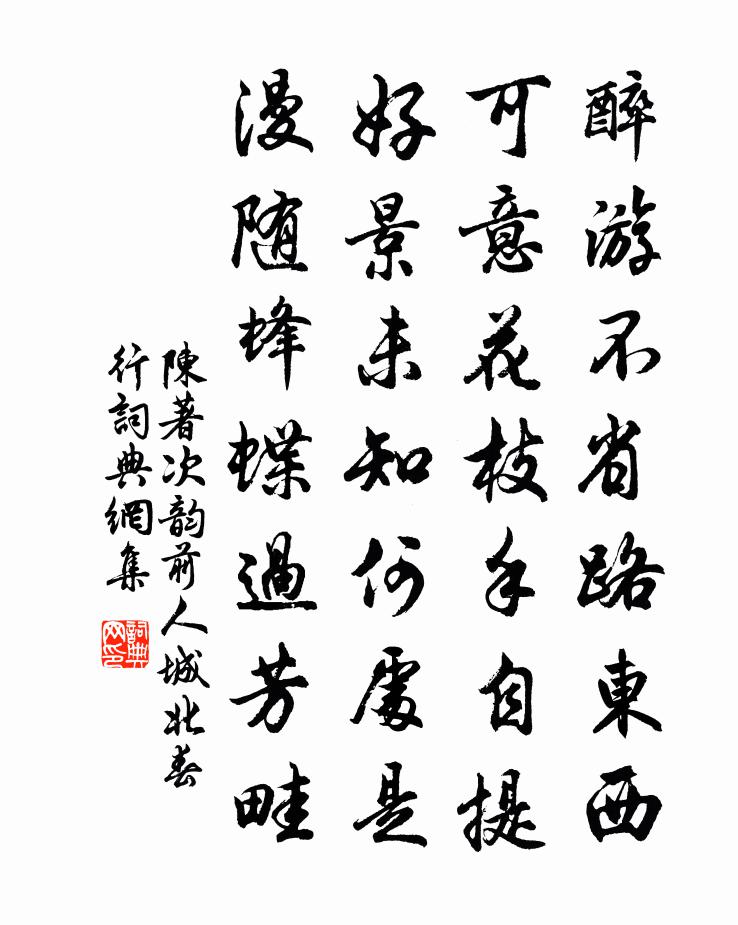 醉游不省路東西
可意花枝手自提
好景未知何處是
漫随蜂蝶過芳畦
陳著次韵前人城北春
行詞典網集
詞典
网印